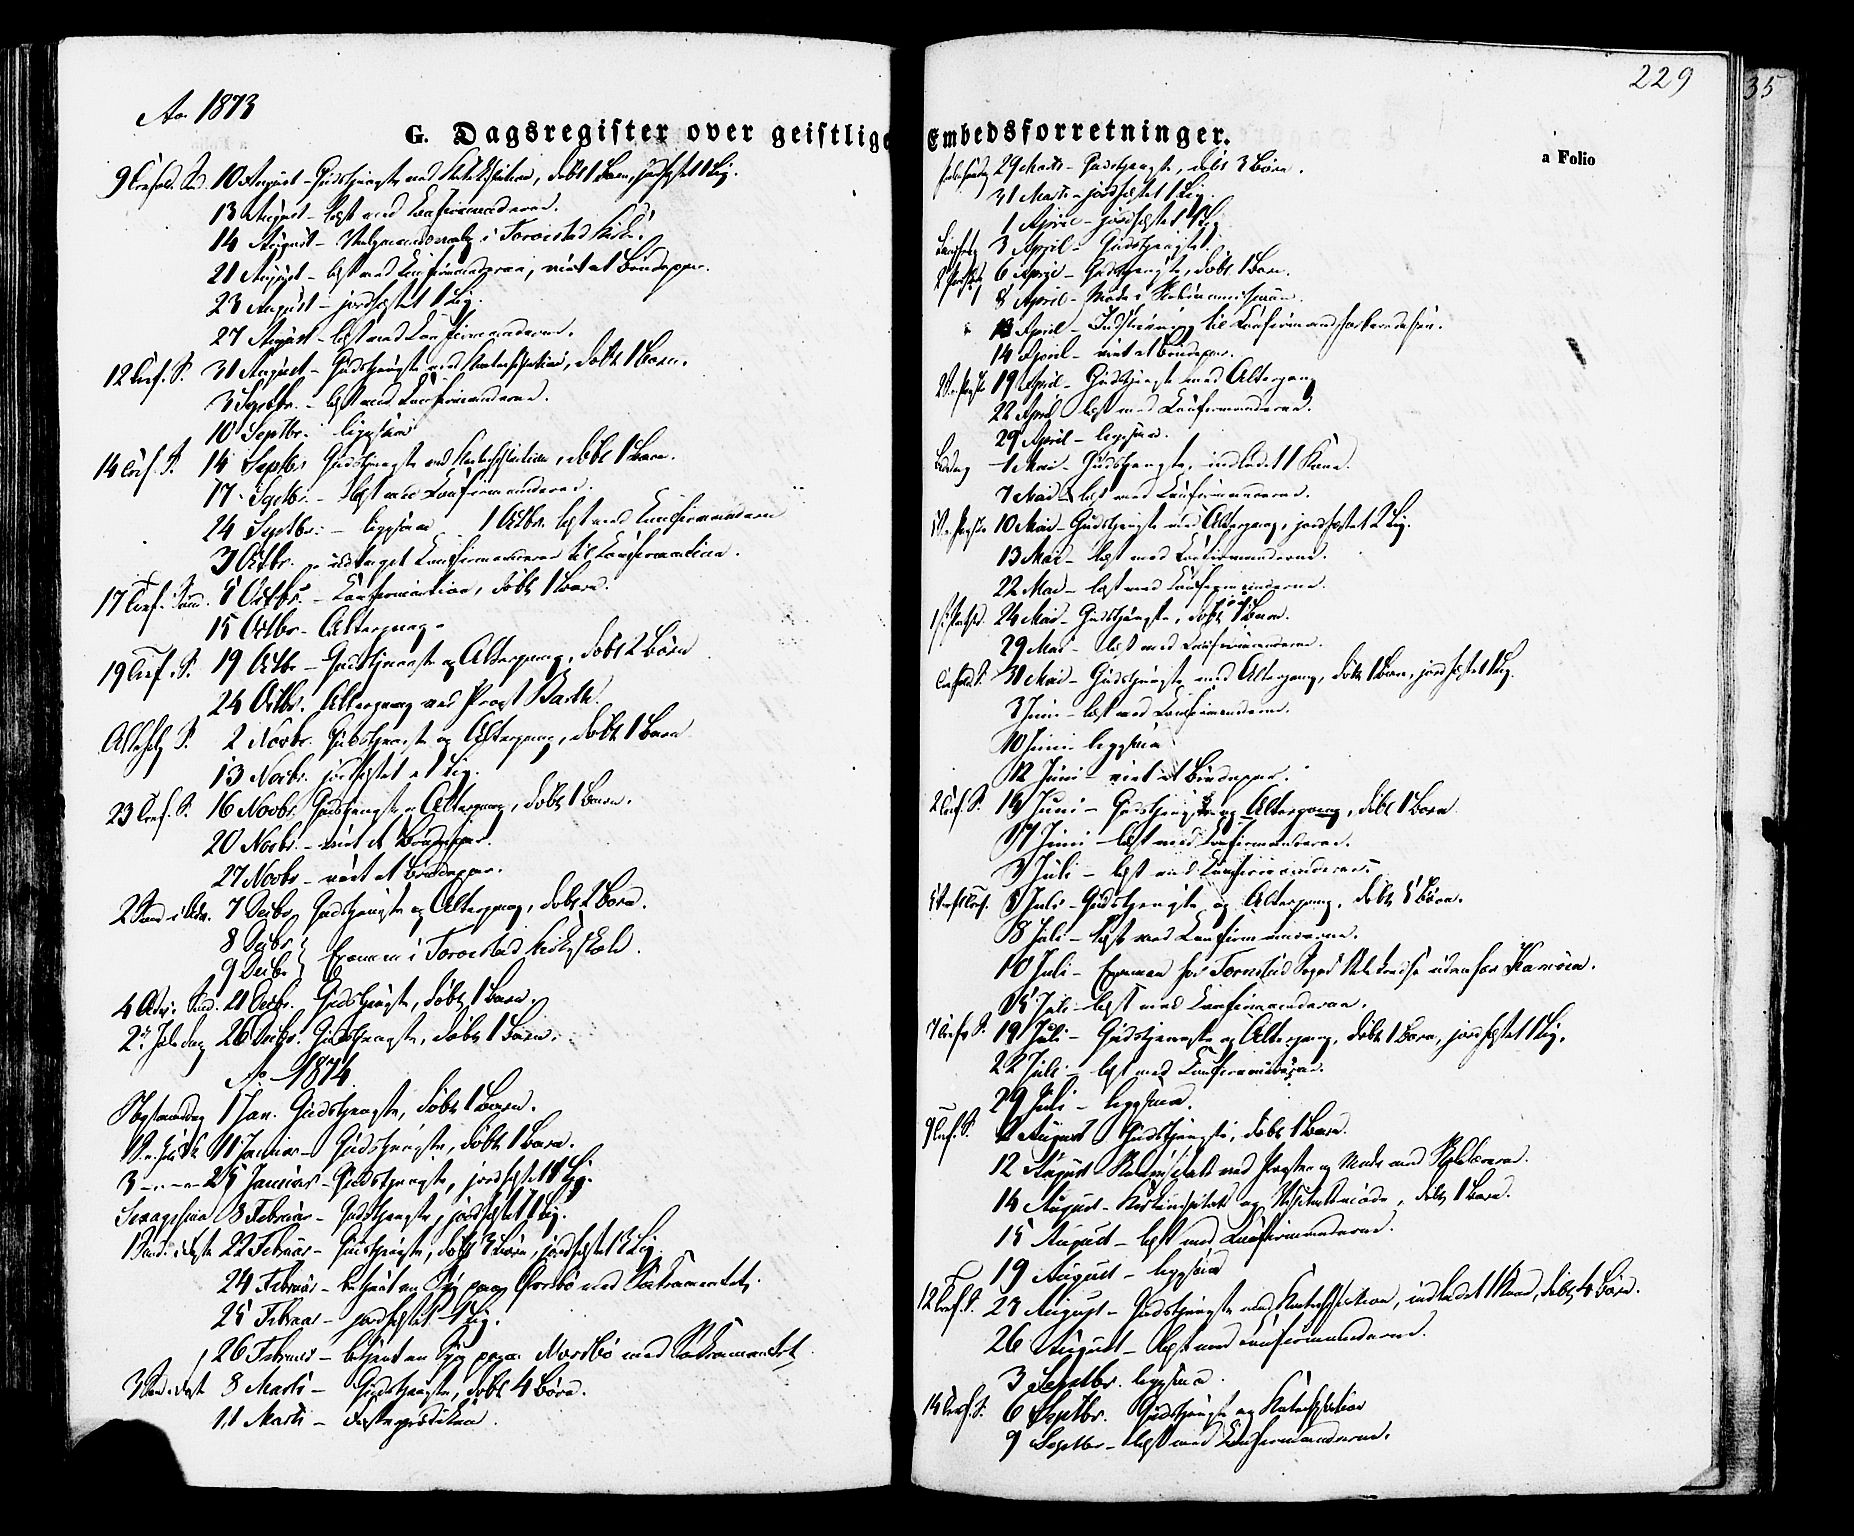 Ao. 1873
G. Dagsregister over geistlige
9 Tref. S. 10 August – Gudstjeneste med Katekisation, døbt 1 Barn, jordfæstet 1 Lig.
13 August – læst med Konfirmanderne.
14 August – Valgmandsvalg i Torvestad Kirke.
21 August – læst med Konfirmanderne, viet et Brudepar.
23 August – jordfæstet 1 Lig.
27 August – læst med Konfirmanderne.
12 Tref. S. 31 August – Gudstjeneste med Katekisation, døbt 1 Barn.
3 Septbr. – læst med Konfirmanderne.
10 Septbr. ligesaa
14 Tref. S. 14 Septbr. Gudstjeneste med Katekisation, døbt 1 Barn.
17 Septbr. – læst med Konfirmanderne.
24 Septbr. – ligesaa 1 Octbr. læst med Konfirmanderne
3 Octbr. – Konfirmanderne til Konfirmation.
17 Tref. Sønd. 5 Octbr. – Konfirmation, døbt 1 Barn.
15 Octbr. – Altergang –
19 Tref. S. 19 Octbr. – Gudstjeneste og Altergang, døbt 2 Børn
24 Octbr. Altergang ved Provst Barth.
Allehelg. S. 2 Novbr. Gudstjeneste og Altergang, døbt 1 Barn
13 Novbr. jordfæstet et Lig.
23 Tref. S. 16 Novbr. Gudstjeneste og Altergang, døbt 1 Barn.
20 Novbr. – viet et Brudepar.
27 Novbr. – viet et Brudepar.
2 Sønd. i Adv. 7 Decbr. Gudstjeneste og Altergang, døbt Barn.
8 Decbr.
9 Decbr. } Examen i Torvestad Kirkeskole.
4 Adv. Sønd. 21 Decbr. Gudstjeneste, døbt 1 Barn.
2den Juledag 26 Decbr. Gudstjeneste, døbt 1 Barn.
Ao. 1874
Nytaarsdag 1 Jan. Gudstjeneste, døbt 1 Barn.
1 S. e. H. 3 K. 11 Januar – Gudstjeneste, døbt 1 Barn.
3 – – – 25 Januar – Gudstjeneste, jordfæstet 1 Lig.
Sexagesima 8 Februar – Gudstjeneste, jordfæstet 1 Lig.
1 Sønd. i Faste 22 Februar – Gudstjeneste, døbt 3 Børn, jordfæstet 3 Lig
24 Februar – betjent en Syg paa med Sakramentet.
25 Februar – jordfæstet 1 Lig.
26 Februar – betjent en Syg paa Nordbø med Sakramentet,
3 Sønd. i Faste 8 Marts – Gudstjeneste, døbt 4 Børn.
11 Marts – Fasteprædiken.
229
35
Embedsforretninger.
a Folio
Palmesøndag 29 Marts – Gudstjeneste, døbt 3 Børn.
31 Marts – jordfæstet 1 Lig
1 April – jordfæstet 1 Lig
Langfredag 3 April – Gudstjeneste.
2 Paaskedag 6 April – Gudstjeneste, døbt 1 Barn.
8 April – Møde i
13 April – Indskrivning til Konfirmandforberedelsen.
14 April – viet et Brudepar.
2 S. e. Paaske 19 April – Gudstjeneste med Altergang
22 April læst med Konfirmanderne.
29 April – ligesaa.
Bededag 1 Mai – Gudstjeneste, indledet 1 Kone.
7 Mai – læst med Konfirmanderne.
S. e. Paaske 10 Mai – Gudstjeneste med Altergang, jordfæstet 2 Lig.
13 Mai – læst med Konfirmanderne.
22 Mai – læst med Konfirmanderne.
1ste Pintsed. 24 Mai – Gudstjeneste, døbt 1 Barn.
29 Mai – læst med Konfirmanderne.
Trefold. S. 31 Mai – Gudstjeneste med Altergang, døbt 1 Barn, jordfæstet 1 Lig.
3 Juni – læst med Konfirmanderne.
10 Juni – ligesaa
12 Juni – viet et Brudepar.
2 Tref. S. 14 Juni – Gudstjeneste og Altergang, døbt 1 Barn
17 Juni – læst med Konfirmanderne.
3 Juli – læst med Konfirmanderne.
5 S. e. Tref. 5 Juli – Gudstjeneste og Altergang, døbt 5 Børn.
8 Juli – læst med Konfirmanderne.
10 Juli – Examen for Torvestad Sogns udenfor Karmøen.
15 Juli – læst med Konfirmanderne.
7 Tref. S. 19 Juli – Gudstjeneste og Altergang, døbt 1 Barn, jordfæstet 1 Lig.
22 Juli – læst med Konfirmanderne.
29 Juli – ligesaa.
9 Tref. S. 2 August Gudstjeneste, døbt 1 Barn.
12 August ved Provsten og Møde med Skolelærerne.
14 August – Kirkevisitats og, døbt 1 Barn.
15 August – læst med Konfirmanderne.
19 August – ligesaa
12 Tref. S. 23 August – Gudstjeneste med Katekisation, indledet 1 Kone, døbt 4 Børn.
26 August – læst med Konfirmanderne.
3 Septbr. ligesaa.
14 Tref. S. 6 Septbr. Gudstjeneste og Katekisation
9 Septbr. – læst med Konfirmanderne.